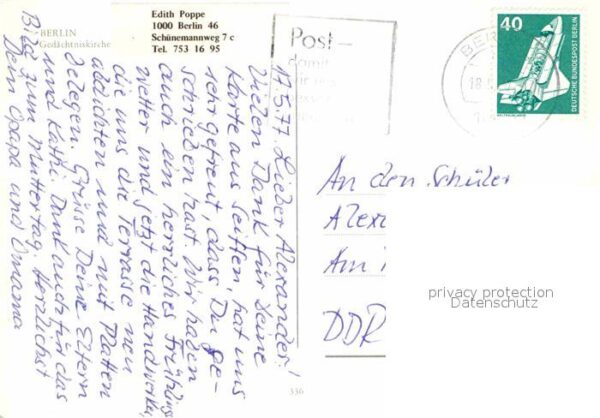 BERLIN
Gedächtniskirche
Edith Poppe
1000 Berlin 46
Schünemannweg 7 c
Tel. 753 16 95
Post-
40
DEUTSCHE BUNDESPOST BERLIN
17.5.77. Lieber Alexander!
Vielen Dank für Deine
Karte aus Seiffen, hat uns
sehr gefreut, dass Du ge-
schrieben hast. Wir haben
auch ein herrliches Frühlings
wetter und jetzt die Handwerker,
die uns die Terrasse neu
abdichten und mit Platten
belegen. Grüsse Deine Eltern
und Kathi. Dank auch für das
Bild zum Muttertag. Herzlichst
Dein Opapa und Omama
An den Schüler
Am
DDR
privacy protection
Datenschutz
336